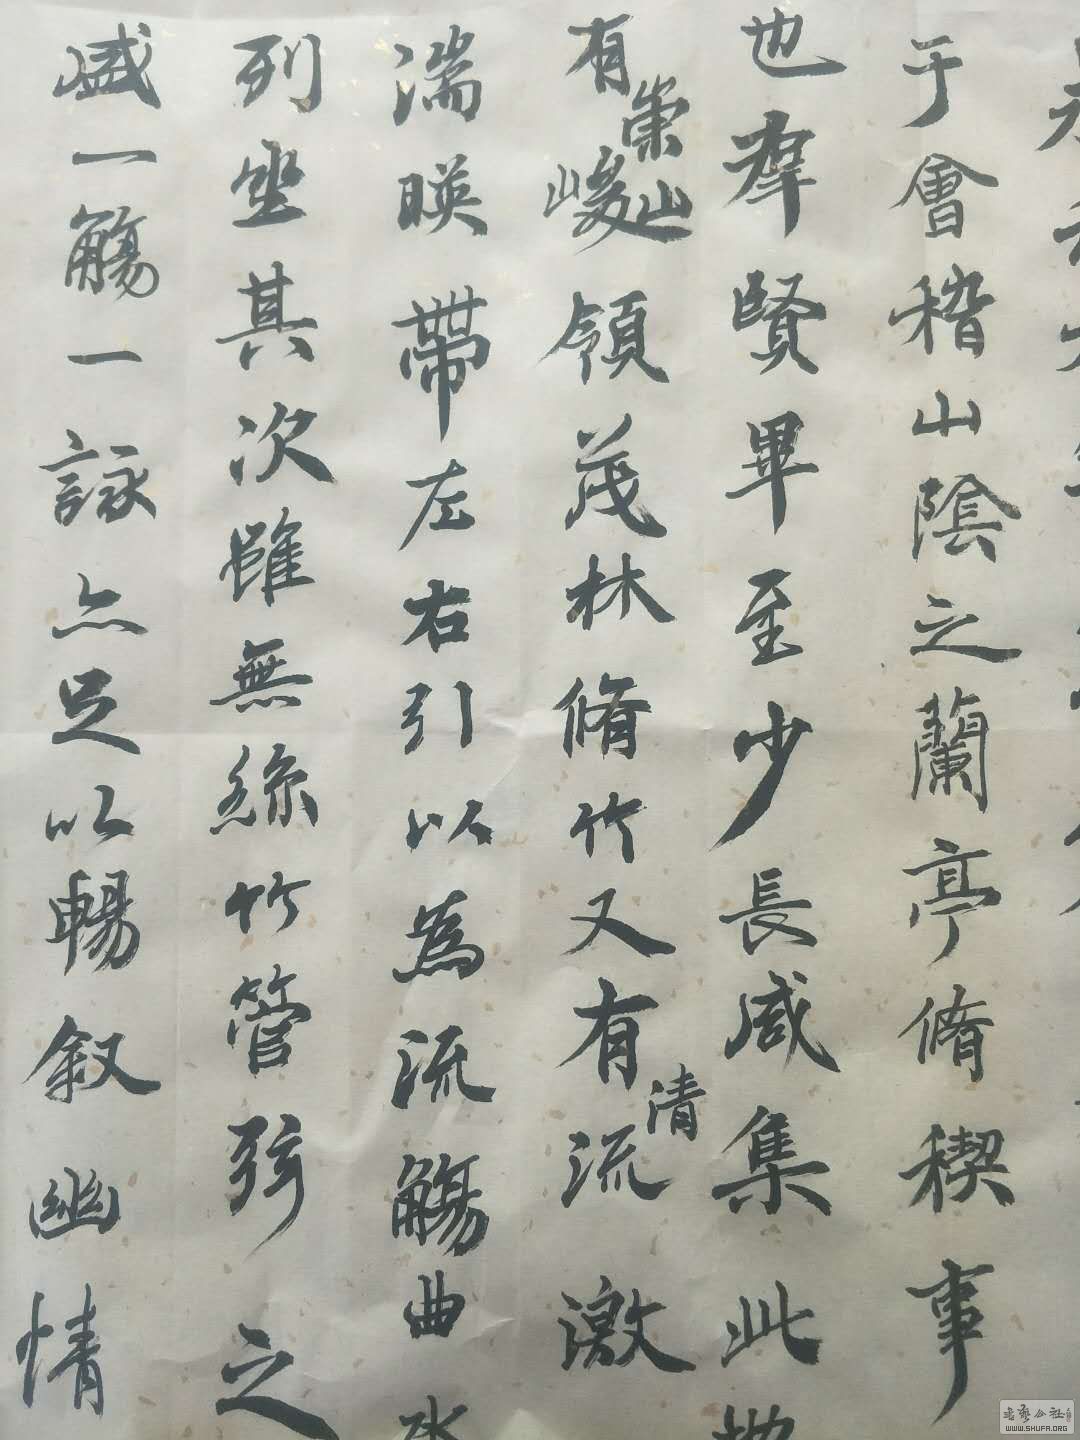 于會稽山陰之蘭亭脩稧事
也羣賢畢至少長咸集此地
有崇山峻領茂林脩竹又有清流激
湍暎帶左右引以為流觴曲水
列坐其次雖無絲竹管弦之
盛一觴一詠亦足以暢叙幽情
书艺公社
WWW.SHUFA.ORG